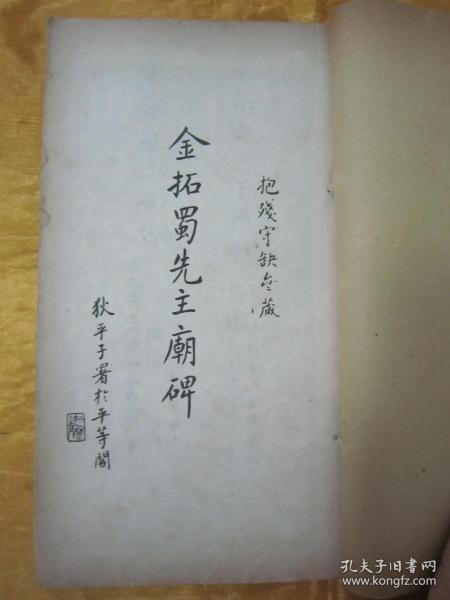 抱殘守缺盦藏
金拓蜀先主廟碑
狄平子署於平等閣
孔夫子旧书网
www.kongfz.com